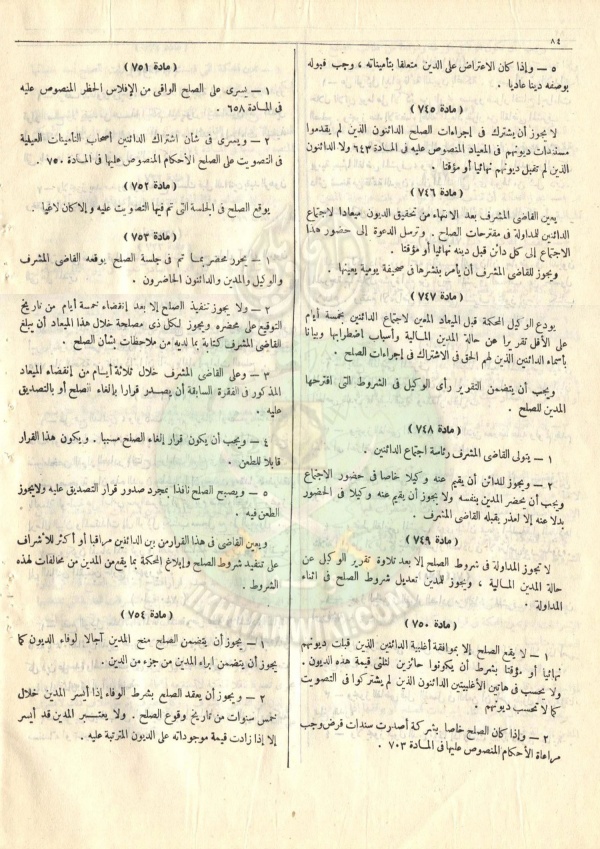 ٨٤
٥ – وإذا كان الاعتراض على الدين متعلقا بتأميناته ، وجب قبوله
بوصفه دينا عاديا .
( مادة ٧٤٥ )
لا يجوز أن يشترك فى اجراءات الصلح الدائنون الذين لم يقدموا
مستندات ديونهم فى الميعاد المنصوص عليه فى المادة ٦٤٣ ولا الدائنون
الذين لم تقبل ديونهم نهائيا أو مؤقتا .
( مادة ٧٤٦ )
يعين القاضى المشرف بعد الانتهاء من تحقيق الديون ميعادا لاجتماع
الدائنين للمداولة فى مقترحات الصلح . وترسل الدعوة إلى حضور هذا
الاجتماع إلى كل دائن قبل دينه نهائيا أو مؤقتا .
ويجوز للقاضى المشرف أن يأمر بنشرها فى صحيفة يومية يعينها .
( مادة ٧٤٧ )
يودع الوكيل المحكمة قبل الميعاد المعين لاجتماع الدائنين بخمسة أيام
على الأقل تقريرا عن حالة المدين المالية وأسباب اضطرابها وبيانا
بأسماء الدائنين الذين لهم الحق فى الاشتراك فى إجراءات الصلح .
ويجب أن يتضمن التقرير رأى الوكيل فى الشروط التى اقترحها
المدين للصلح .
( مادة ٧٤٨ )
١ – يتولى القاضى المشرف رئاسة اجتماع الدائنين .
٢ – ويجوز للدائن أن يقيم عنه وكيلا خاصا فى حضور الاجتماع
ويجب أن يحضر المدين بنفسه ولا يجوز أن يقيم عنه وكيلا فى الحضور
بدلا عنه إلا لعذر يقبله القاضى المشرف .
( مادة ٧٤٩ )
لا تجوز المداولة فى شروط الصلح إلا بعد تلاوة تقرير الوكيل عن
حالة المدين المالية ، ويجوز للمدين تعديل شروط الصلح فى اثناء
المداولة .
( مادة ٧٥٠ )
١ – لا يقع الصلح إلا بموافقة أغلبية الدائنين الذين قبلت ديونهم
نهائيا أو مؤقتا بشرط أن يكونوا حائزين لثلثى قيمة هذه الديون .
ولا يحسب فى هاتين الأغلبيتين الدائنون الذين لم يشتركوا فى التصويت
كما لا تحسب ديونهم .
٢ – وإذا كان الصلح خاصا بشركة أصدرت سندات قرض وجب
مراعاة الأحكام المنصوص عليها فى المادة ٧٠٣ .
( مادة ٧٥١ )
١ – يسرى على الصلح الواقى من الإفلاس الحظر المنصوص عليه
فى المادة ٦٥٨ .
٢ – ويسرى فى شأن اشتراك الدائنين أصحاب التأمينات العينية
فى التصويت على الصلح الأحكام المنصوص عليها فى المادة ٧٥٠ .
( مادة ٧٥٢ )
يوقع الصلح فى الجلسة التى تم فيها التصويت عليه وإلا كان لاغيا .
( مادة ٧٥٣ )
١ – يحرر محضر بما تم فى جلسة الصلح يوقعه القاضى المشرف
والوكيل والمدين والدائنون الحاضرون .
٢ – ولا يجوز تنفيذ الصلح إلا بعد إنقضاء خمسة أيام من تاريخ
التوقيع على محضره ويجوز لكل ذى مصلحة خلال هذا الميعاد أن يبلغ
القاضى المشرف كتابة بما لديه من ملاحظات بشأن الصلح .
٣ – وعلى القاضى المشرف خلال ثلاثة أيام من إنقضاء الميعاد
المذكور فى الفقرة السابقة أن يصدر قرارا بإلغاء الصلح أو بالتصديق
عليه .
٤ – ويجب أن يكون قرار إلغاء الصلح مسببا . ويكون هذا القرار
قابلا للطعن .
٥ – ويصبح الصلح نافذا بمجرد صدور قرار التصديق عليه ولايجوز
الطعن فيه .
ويعين القاضى فى هذا القرار من بين الدائنين مراقبا أو أكثر للأشراف
على تنفيذ شروط الصلح وإبلاغ المحكمة بما يقع من المدين من مخالفات لهذه
الشروط .
( مادة ٧٥٤ )
١ – يجوز أن يتضمن الصلح منح المدين آجالا لوفاء الديون كما
يجوز أن يتضمن ابراء المدين من جزء من الدين .
٢ – ويجوز أن يعقد الصلح بشرط الوفاء إذا أيسر المدين خلال
خمس سنوات من تاريخ وقوع الصلح . ولا يعتبر المدين قد أيسر
إلا إذا زادت قيمة موجوداته على الديون المترتبة عليه .
IKHWANWIKI.COM